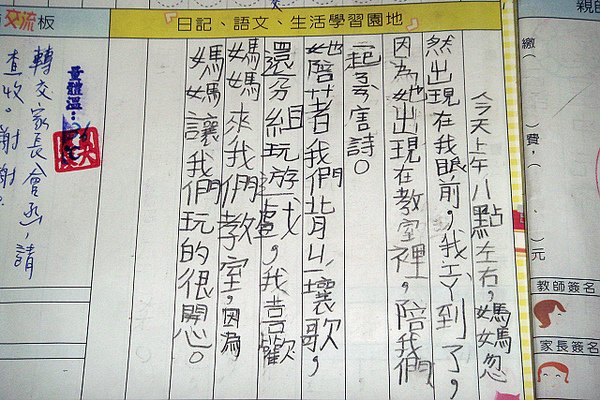 親師
繳（　）費，（　）元
教師簽名
家長簽名
日記、語文、生活學習園地
今天上午八點左右，媽媽忽
然出現在我眼前，我ㄒㄧㄚ到了，
因為她出現在教室裡，陪我們
一起詩。
她陪著我們背山壞歌，
還分組玩遊戲，我喜歡
媽媽來我們教室，因為
媽媽讓我們玩的很開心。
交流板
量體溫：
轉交家長會函，請
查收。謝謝。